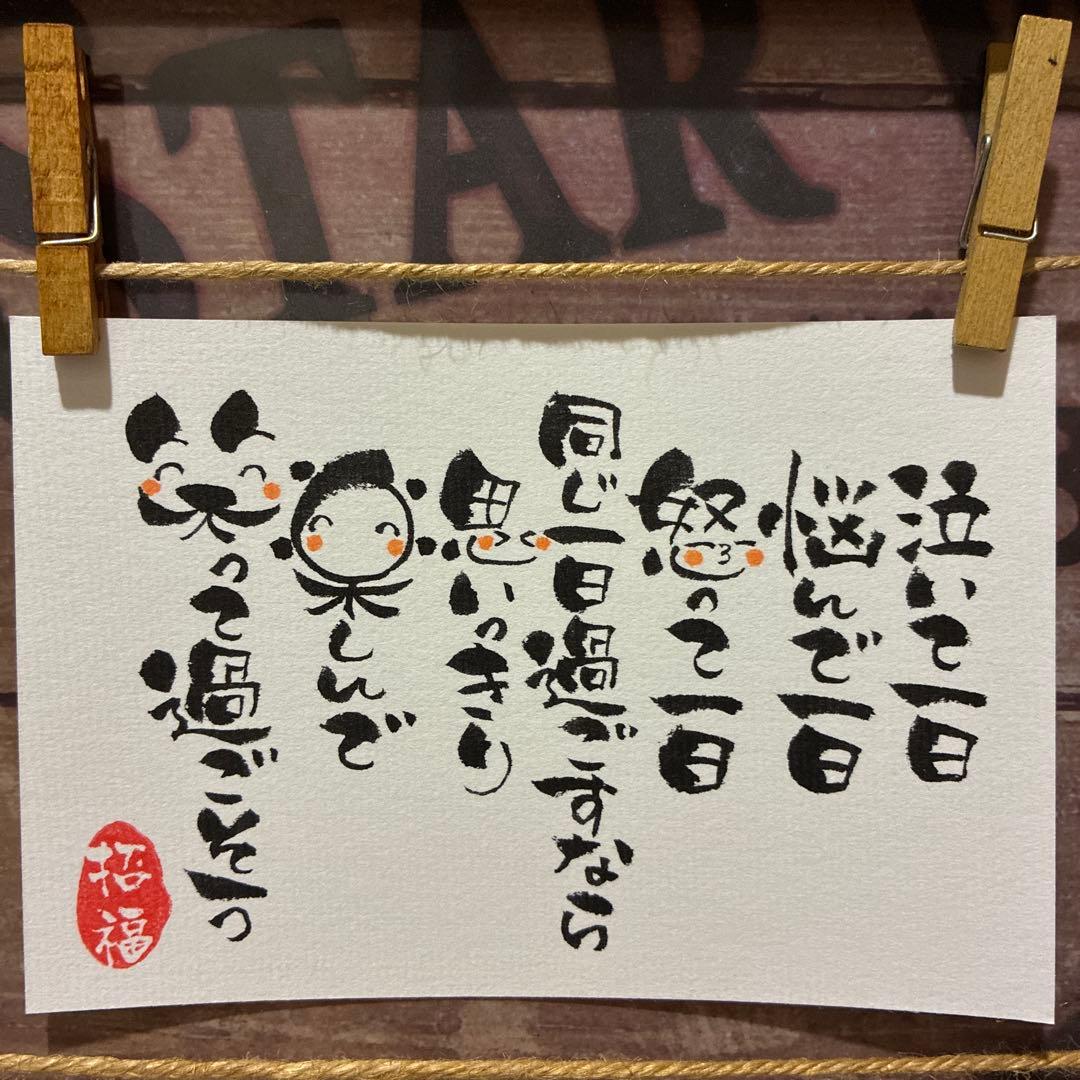 泣いて一日
悩んで一日
怒って一日
同じ一日過ごすなら
思いっきり
楽しんで
笑って過ごそうっ
招福
STAR